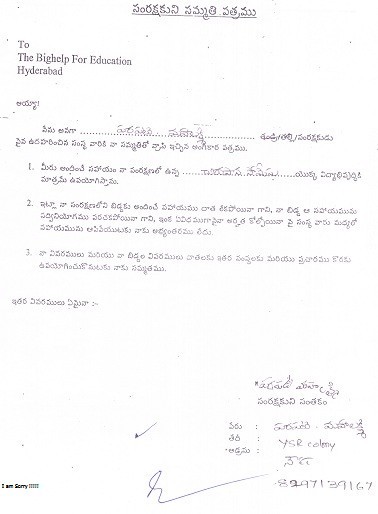 సంరక్షకుని సమ్మతి పత్రము
To
The Bighelp For Education
Hyderabad
అయ్యా!
నేను అనగా ........ మహాలక్ష్మి ........ తండ్రి/తల్లి/సంరక్షకుడు
పైన ఉదహరించిన సంస్థ వారికి నా సమ్మతితో వ్రాసి ఇచ్చిన అంగీకార పత్రము.
1. మీరు అందించే సహాయం నా సంరక్షణలో ఉన్న ........ యొక్క విద్యాభివృద్ధికి
మాత్రమే ఉపయోగిస్తాను.
2. ఇట్లా నా సంరక్షణలోని బిడ్డకు అందించే సహాయము చాత శికపోయినా గాని, నా బిడ్డ ఆ సహాయమును
సద్వినియోగము పరచకపోయినా గాని, ఇంక ఏవిధముగానైనా అర్హత కోల్పోయినా పై సంస్థ వారు మధ్యలో
సహాయమును ఆపివేయుటకు నాకు అభ్యంతరము లేదు.
3. నా వివరములు మరియు నా బిడ్డల వివరములు దాతలకు ఇతర సంస్థలకు మరియు ప్రచారము కొరకు
ఉపయోగించుకొనుటకు నాకు సమ్మతము.
ఇతర వివరములు ఏమైనా :-
సంరక్షకుని సంతకం
పేరు : మహాలక్ష్మి
తేదీ :
అడ్రసు : YSR colony
8297139167
I am Sorry !!!!!